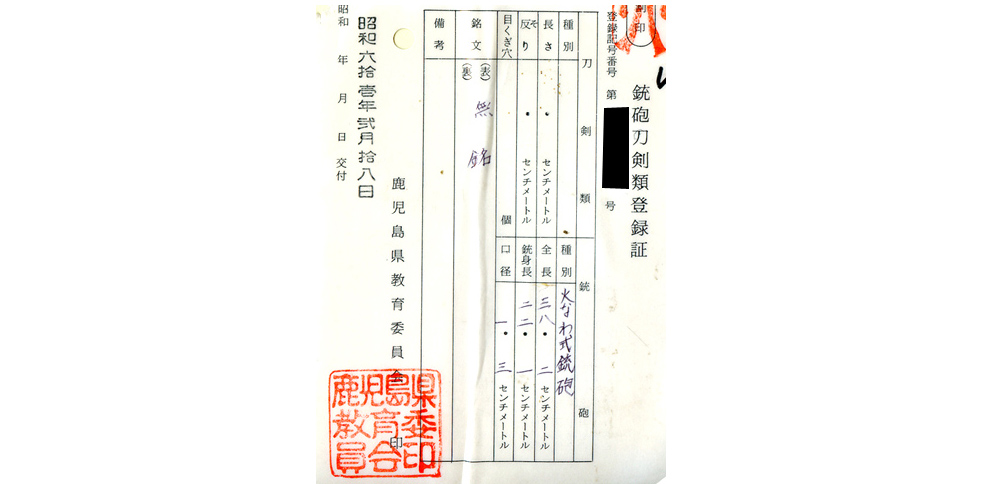 割印
銃砲刀剣類登録証
登録記号番号 第 号
刀剣類
銃砲
種別
長さ ・ センチメートル
反り そ ・ センチメートル
目くぎ穴 個
種別 火なわ式銃砲
全長 三八・二 センチメートル
銃身長 二二・一 センチメートル
口径 一・三 センチメートル
銘文 (表) 無銘
(裏)
備考
鹿児島県教育委員会 印
鹿児島県教育委員会印
昭和六拾壱年弐月拾八日
昭和 年 月 日 交付